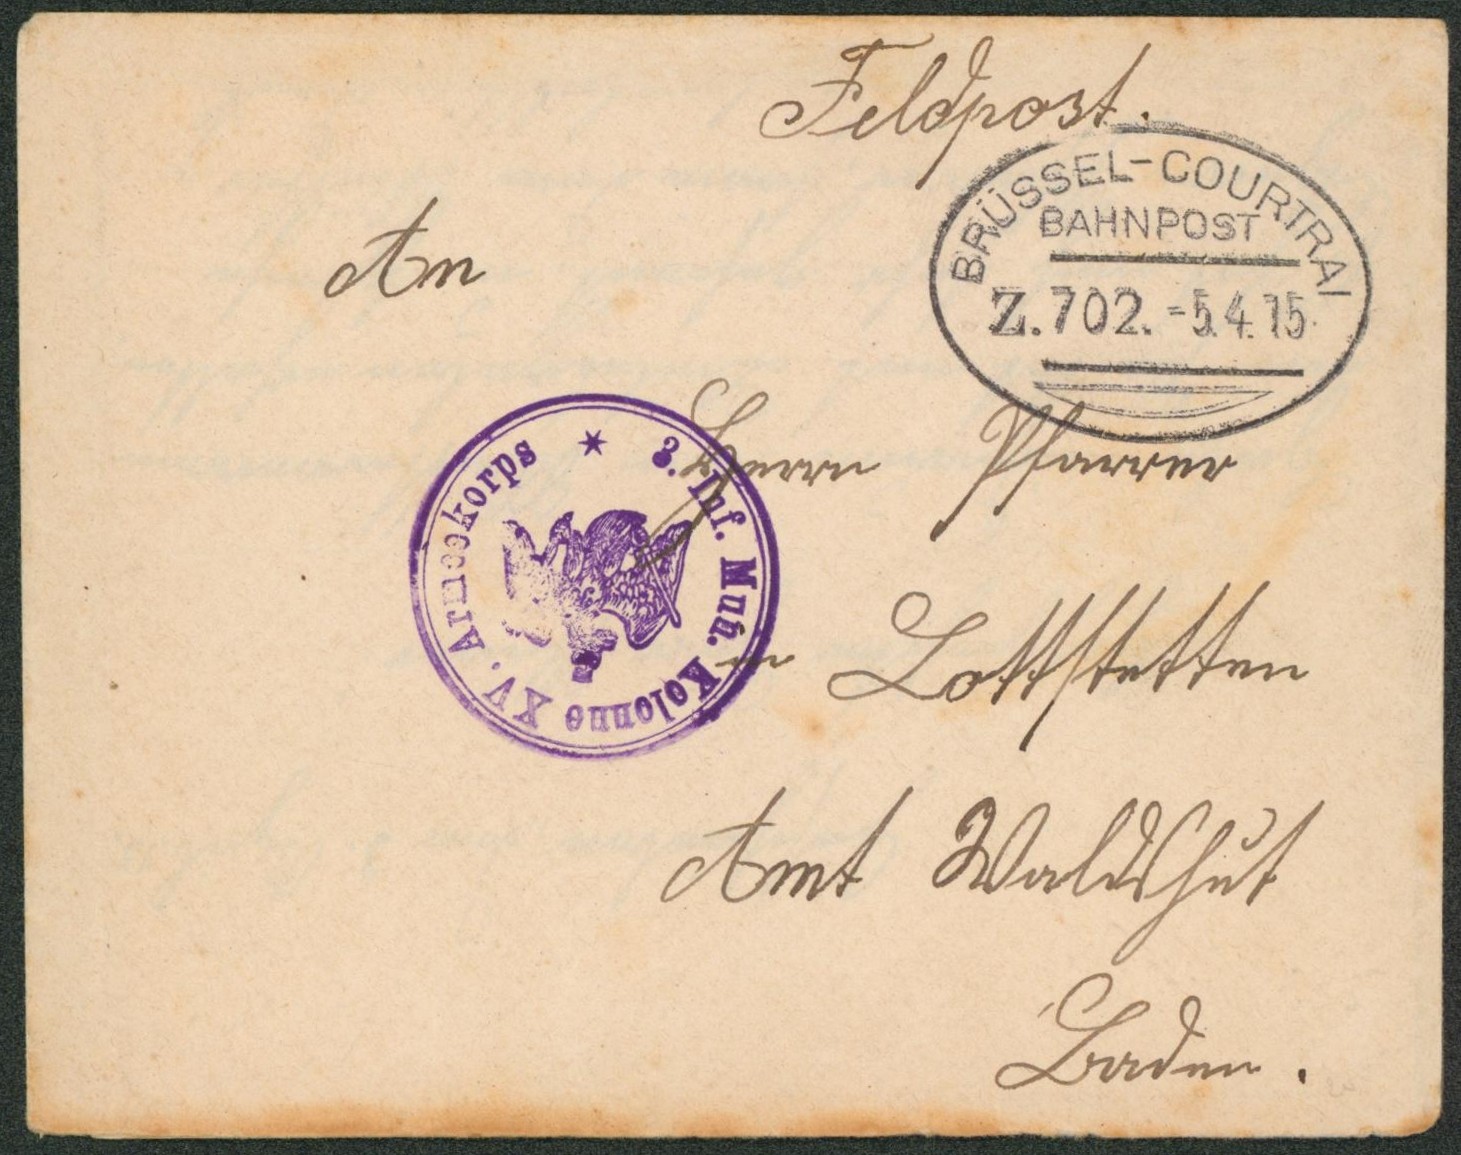 Feldpost.
BRÜSSEL-COURTRAI
BAHNPOST
Z.702. -5.4.15
An
Herrn Pfarrer
3. Inf. Mun. Kolonne XV. Armeekorps *
in Lottstetten
Amt Waldshut
Baden.